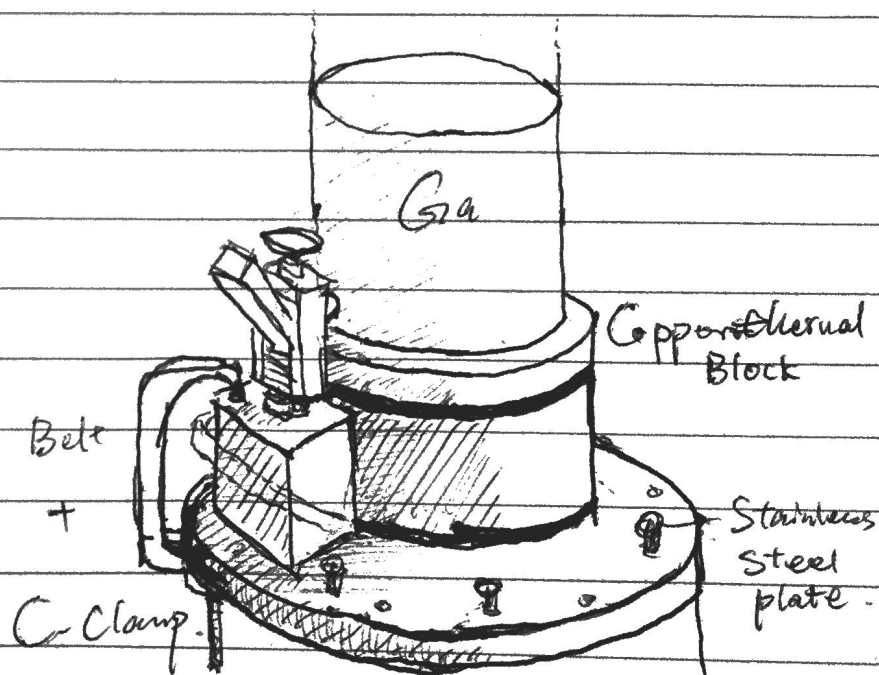 Ga
Copper thermal
Block
Belt
+
C-Clamp.
Stainless
Steel
plate.